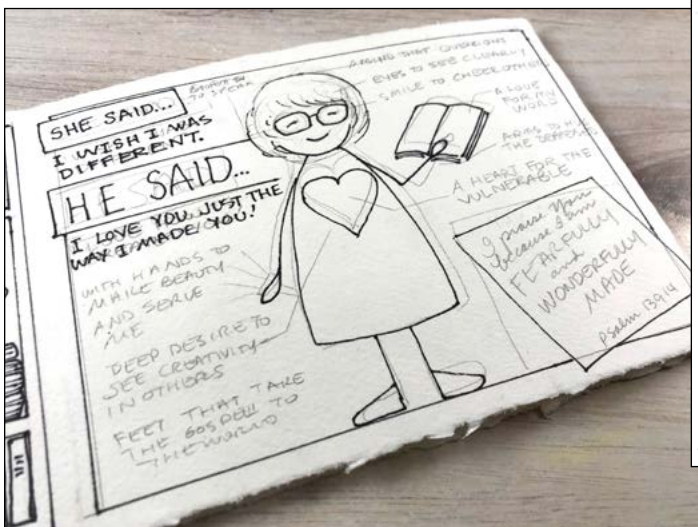 SHE SAID...
I WISH I WAS
DIFFERENT.
HE SAID...
I LOVE YOU JUST THE
WAY I MADE YOU!
WITH HANDS TO
MAKE BEAUTY
AND SERVE
ME
DEEP DESIRE TO
SEE CREATIVITY
IN OTHERS
FEET THAT TAKE
THE GOSPEL TO
THE WORLD
TO SPEAK
AGING THAT
EYES TO SEE CLEARLY
SMILE TO CHEER OTHERS
A LOVE
FOR MY
WORD
ARMS TO HUG
THE
A HEART FOR THE
VULNERABLE
I praise you
because I am
FEARFULLY
and
WONDERFULLY
MADE
Psalm 139:14